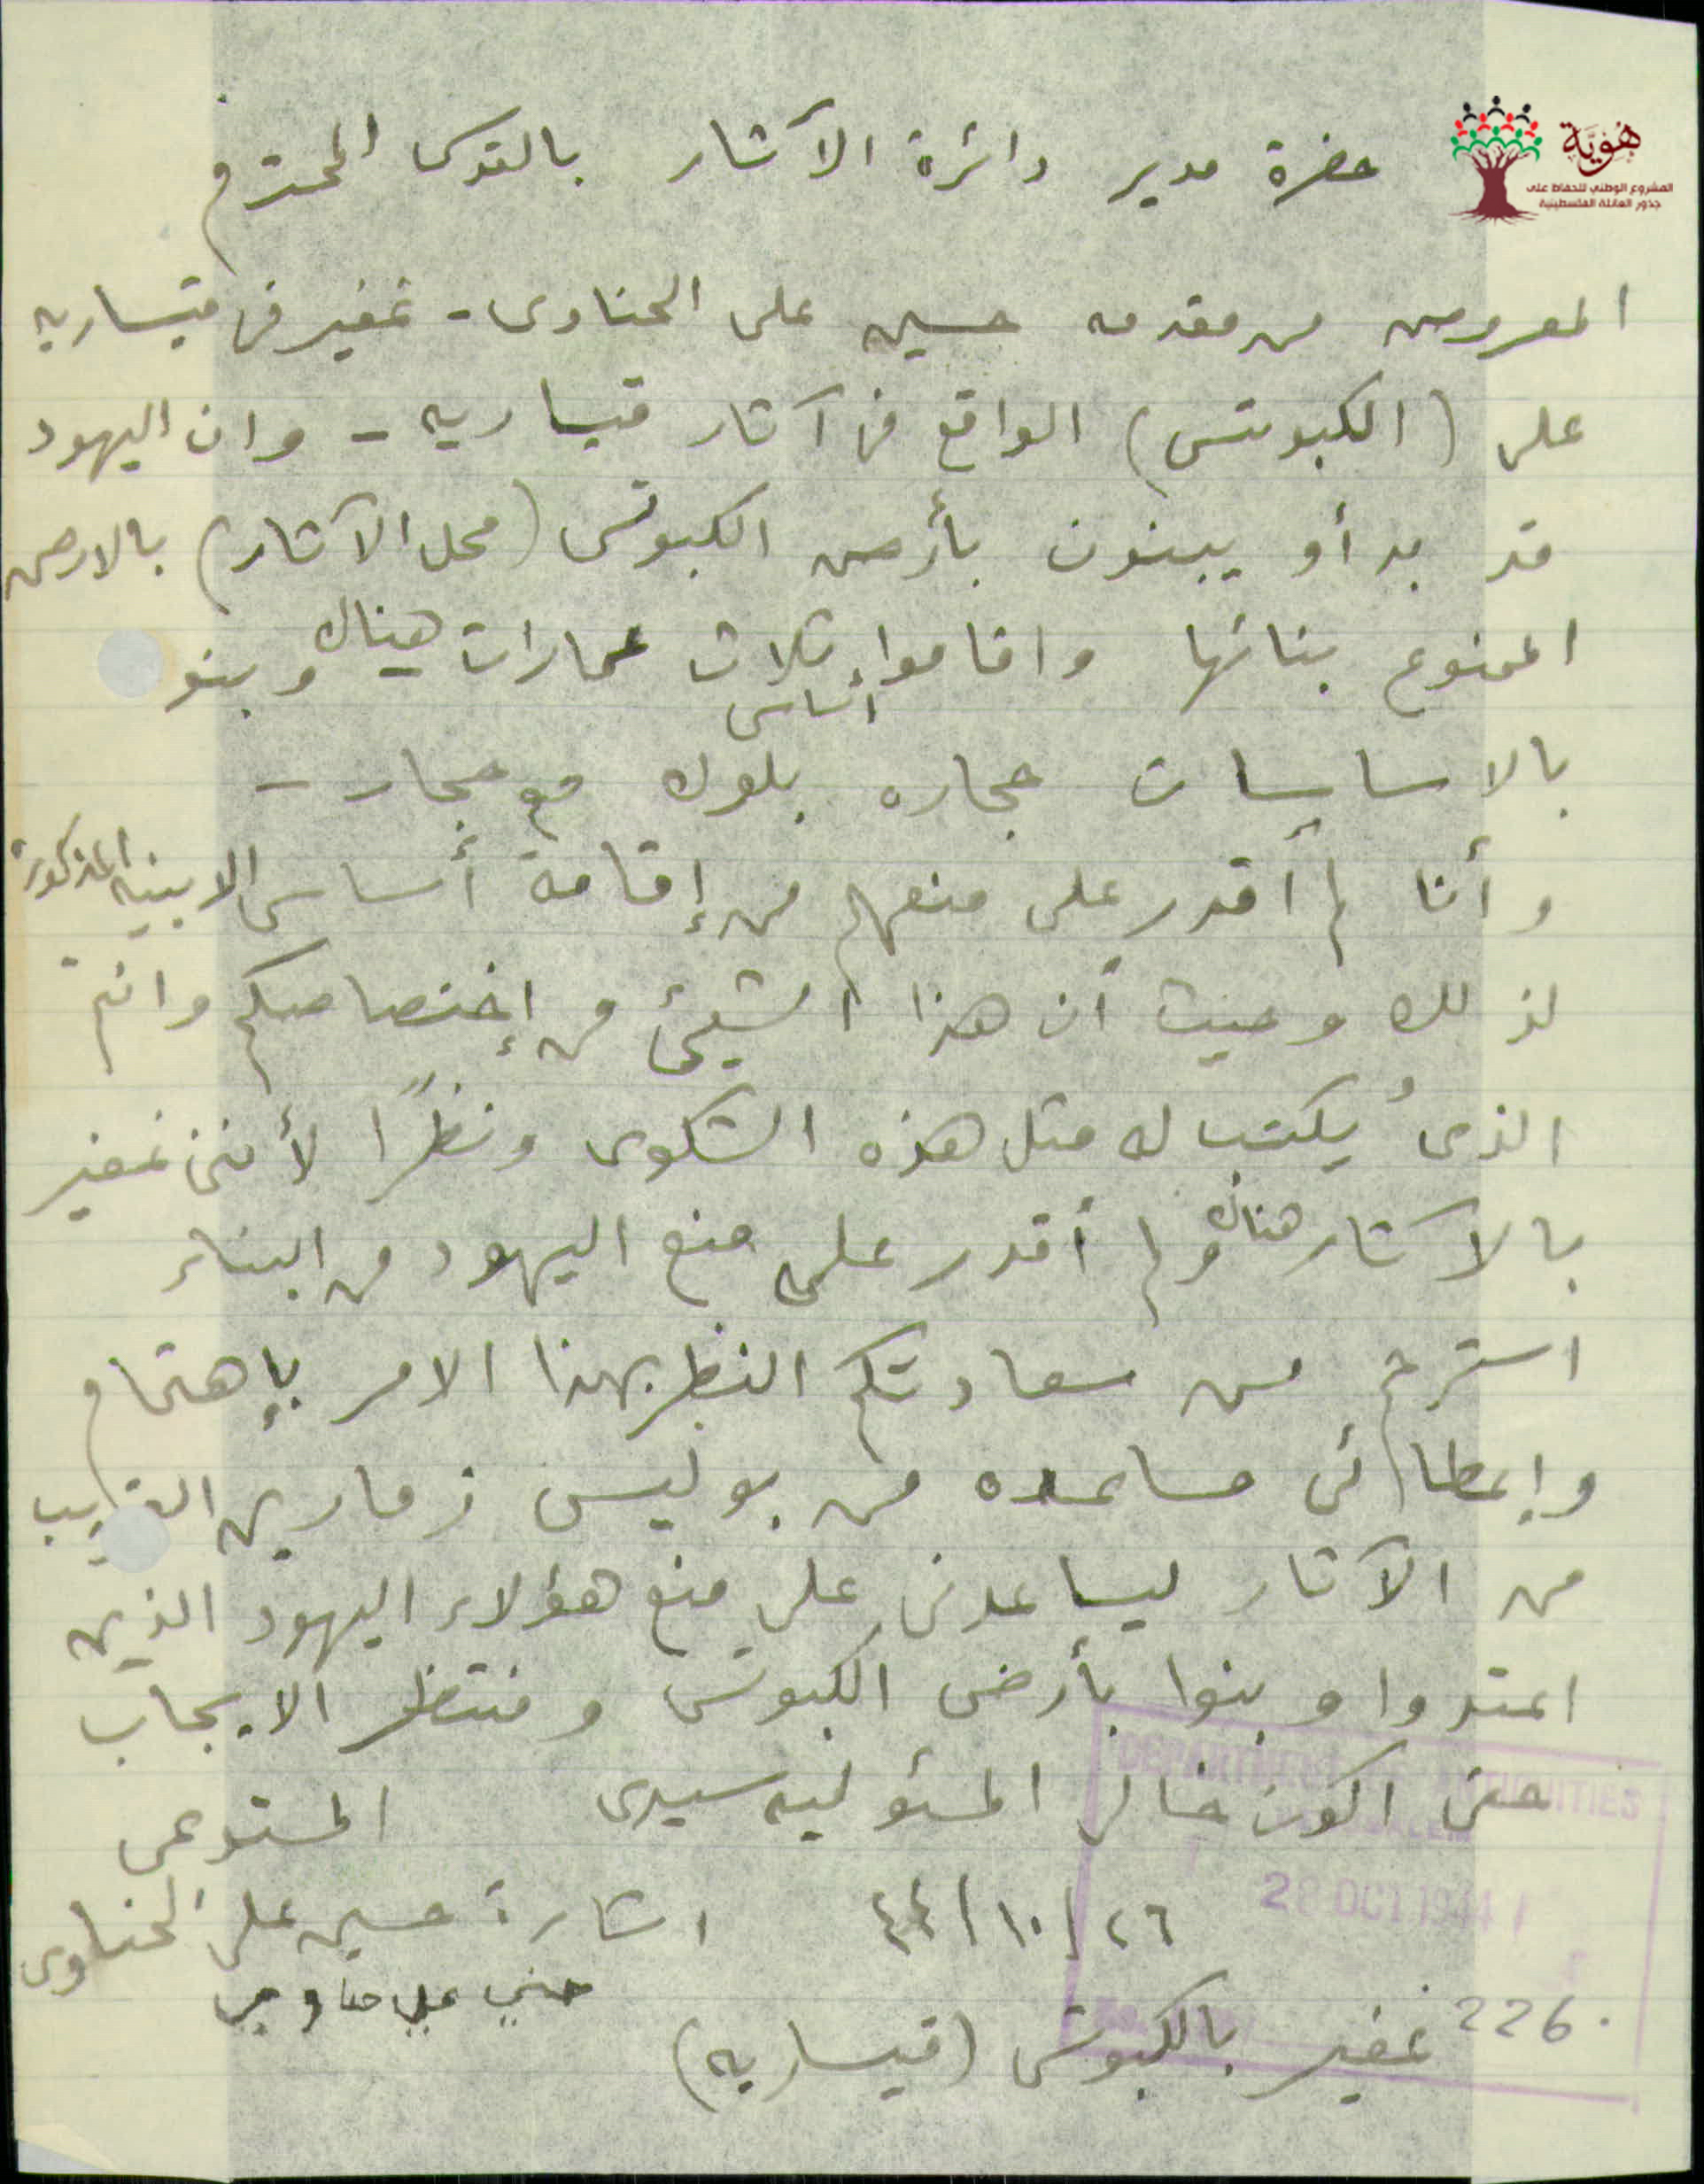 هُوِيَّة
المشروع الوطني للحفاظ على
جذور العائلة الفلسطينية
حضرة مدير دائرة الآثار بالقدس المحترم
المعروض من مقدمه حسين على الحناوى - غفير فى قيساريه
على (الكبوتس) الواقع فى آثار قيساريه - وان اليهود
قد بدأو يبنون بأرض الكبوتس (محل الآثار) بالارض
الممنوع بنائها واقاموا أساس ثلاث عمارات هناك وبنو
بالاساسات حجاره بلوك مع حجار -
وأنا لم أقدر على منعهم من إقامة أساس الابنيه المذكورة
لذلك وحيث أن هذا الشيئ من إختصاصكم وانتم
الذى يُكتب له مثل هذه الشكوى ونظرًا لأننى غفير
بالاثار هناك ولم أقدر على منع اليهود من البناء
استرحم من سعادتكم النظر بهذا الامر بإهتمام
وإعطائى مساعده من بوليس زمارين القريب
من الآثار ليساعدنى على منع هؤلاء اليهود الذين
اعتدوا وبنوا بأرض الكبوتس ومنتظر الايجاب
حتى اكون خالى المسئوليه سيدى المستدعى
٢٦/١٠/٤٤ اشارة حسين على الحناوى
حسين علي حناوي
غفير بالكبوتس (قيساريه)
DEPARTMENT OF ANTIQUITIES
JERUSALEM
28 OCT 1944
226.